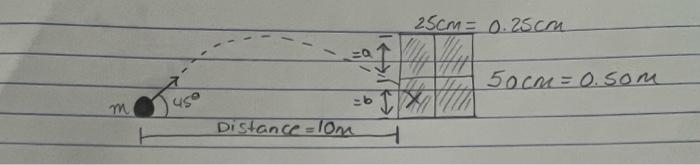 25cm = 0.25cm
=a
50cm = 0.50m
m
45°
=b
x
Distance = 10m